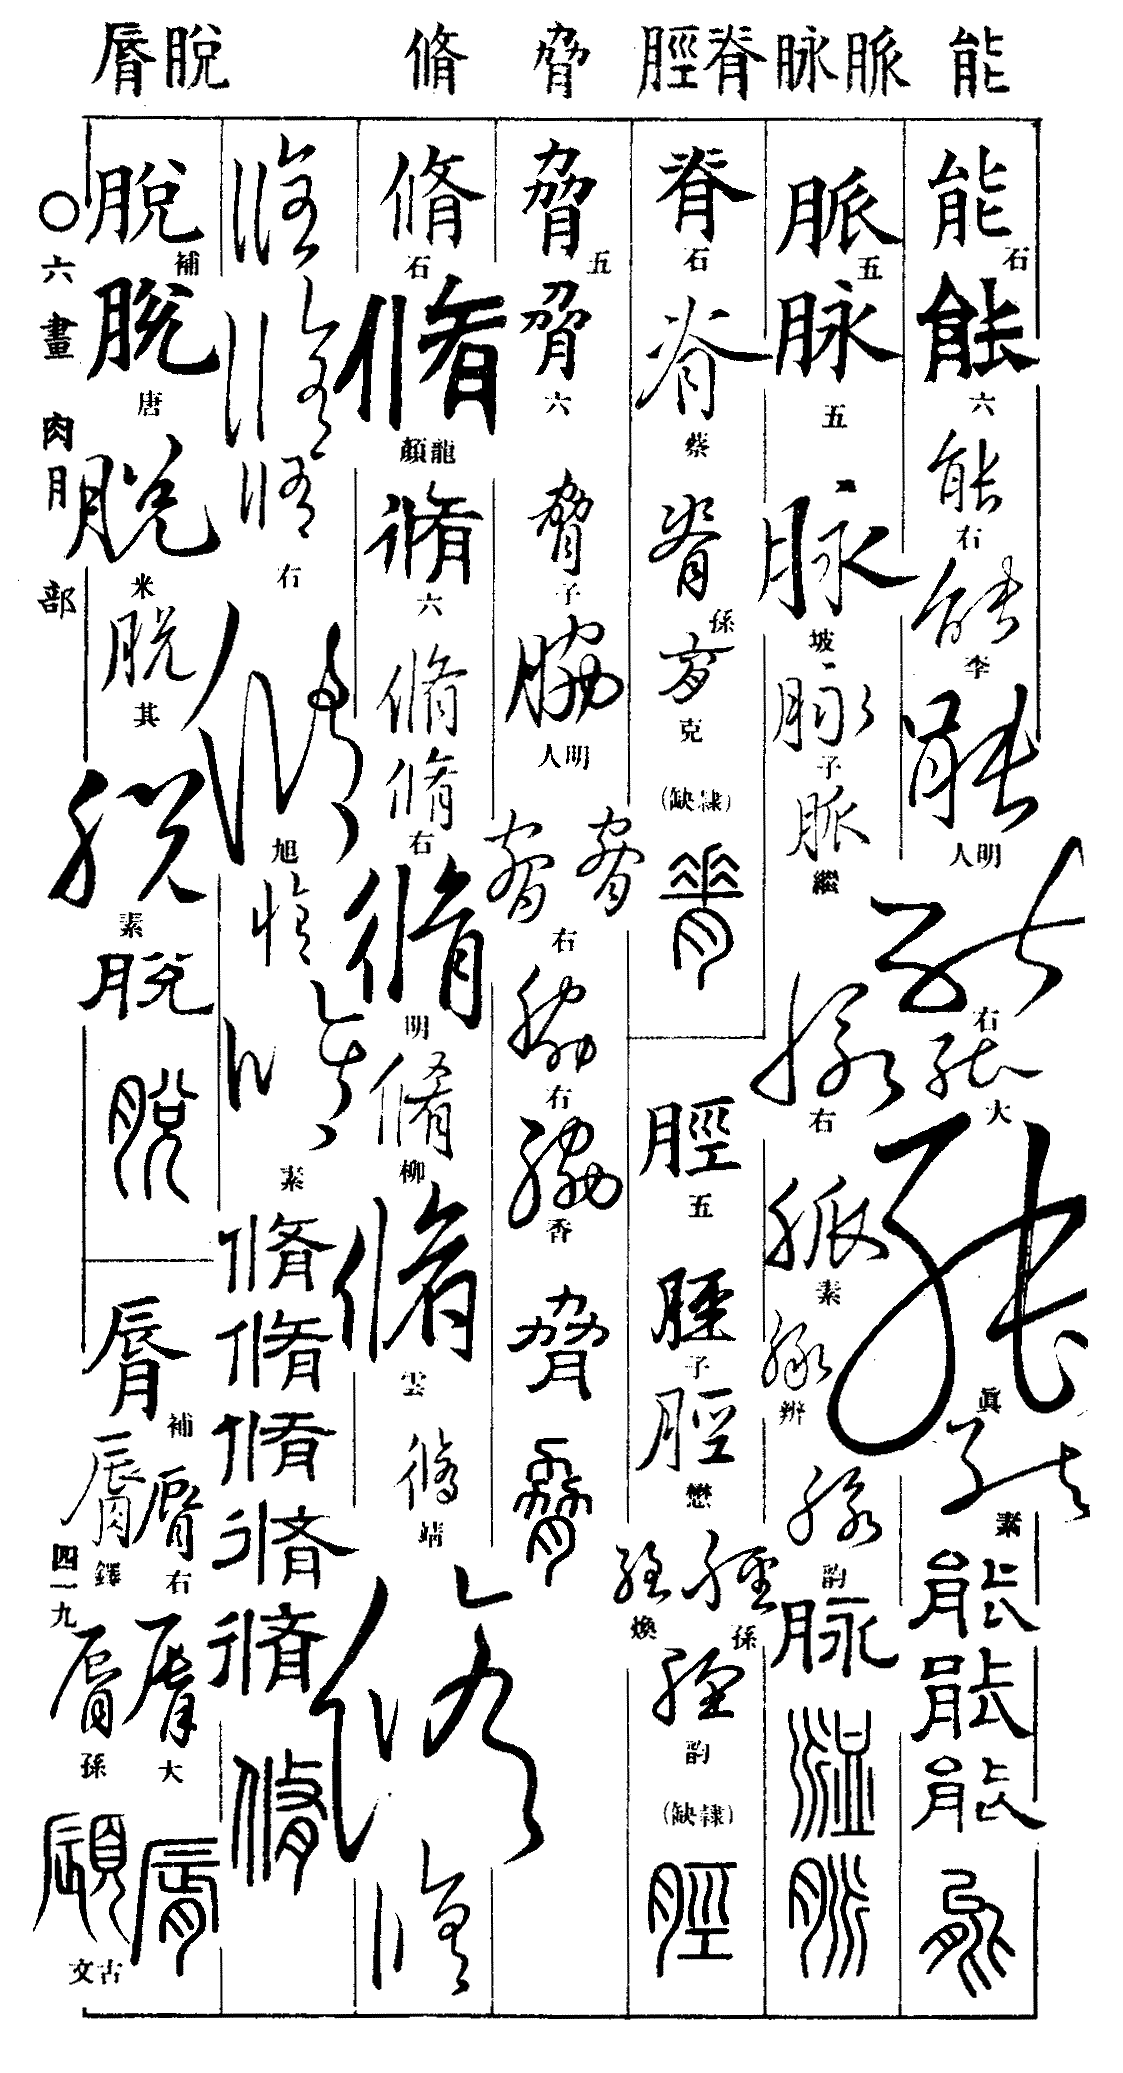 能 脈 脉 脊 脛 脅 脩 脫 脣
能 石
能 六
能 右
能 李
能 明人
能 右
能 大
能 眞
能 素
能
能
能
能
脈 五
脉 五
脉 坡
脉 子
脈 繼
脉 右
脈 素
脉 辨
脉 韵
脉
脈
脊 石
脊 蔡
脊 孫
脊 克
(隷缺)
脊
脛 五
脛 子
脛 懋
脛 孫
脛 煥
脛 韵
(隷缺)
脛
脅 五
脅 六
脅 子
脇 明人
脅 脅 右
脇 右
脇 香
脅
脅
脩 石
脩 龍顏
脩 六
脩
脩 右
脩 明
脩 柳
脩 雲
脩 靖
脩
脩
脩
脩
脩 右
脩 旭
脩
脩 素
脩
脩
脩
脩
脩
脩
脫 補
脫 唐
脫 米
脫 其
脫 素
脫
脫
脣 補
脣 右
脣 鐸
脣 大
脣 孫
脣
顧 古文
○六畫 肉月部 四一九